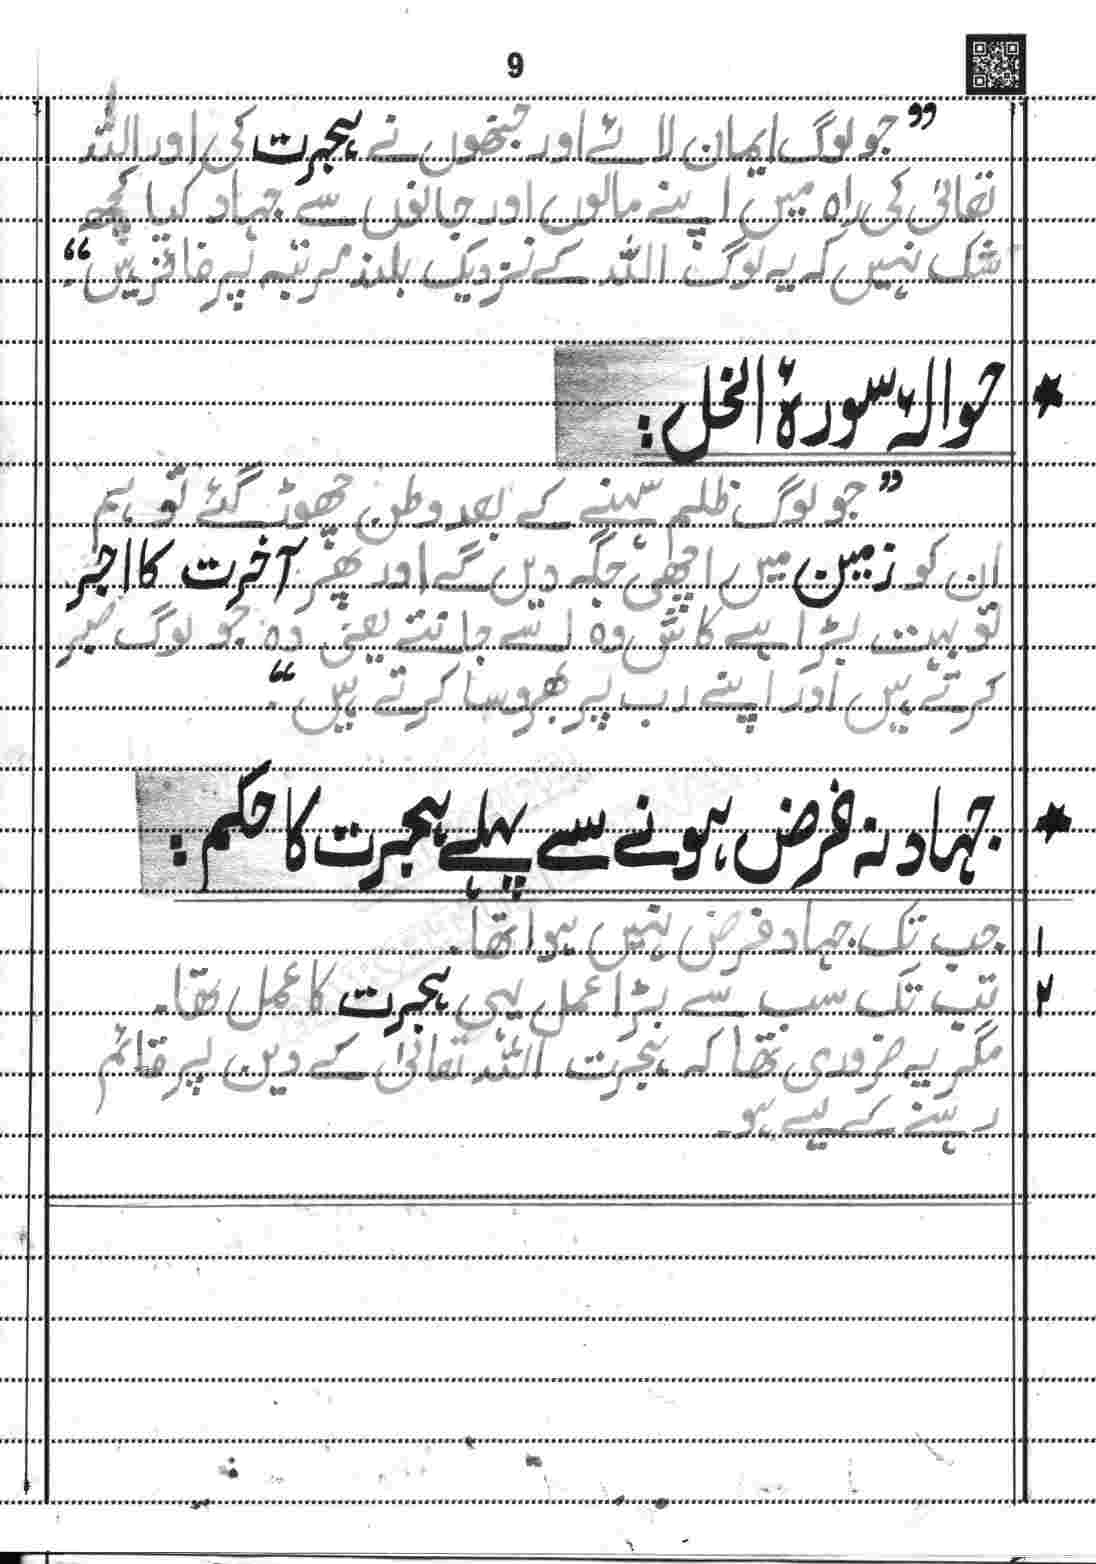 9
”جو لوگ ایمان لائے اور جنھوں نے ہجرت کی اور اللہ
تعالیٰ کی راہ میں اپنے مالوں اور جانوں سے جہاد کیا کچھ
شک نہیں کہ یہ لوگ اللہ کے نزدیک بلند مرتبہ پر فائز ہیں“۔
* حوالۂ سورۃ النحل:
”جو لوگ ظلم سہنے کے بعد وطن چھوڑ گئے تو ہم
ان کو زمین میں اچھی جگہ دیں گے اور پھر آخرت کا اجر
تو بہت بڑا ہے کاش وہ اسے جانتے یعنی وہ جو لوگ صبر
کرتے ہیں اور اپنے رب پر بھروسا کرتے ہیں“۔
* جہاد نہ فرض ہونے سے پہلے ہجرت کا حکم:
۱ جب تک جہاد فرض نہیں ہوا تھا۔
۲ تب تک سب سے بڑا عمل یہی ہجرت کا عمل تھا۔
مگر یہ ضروری تھا کہ ہجرت اللہ تعالیٰ کے دین پر قائم
رہنے کے لیے ہو۔